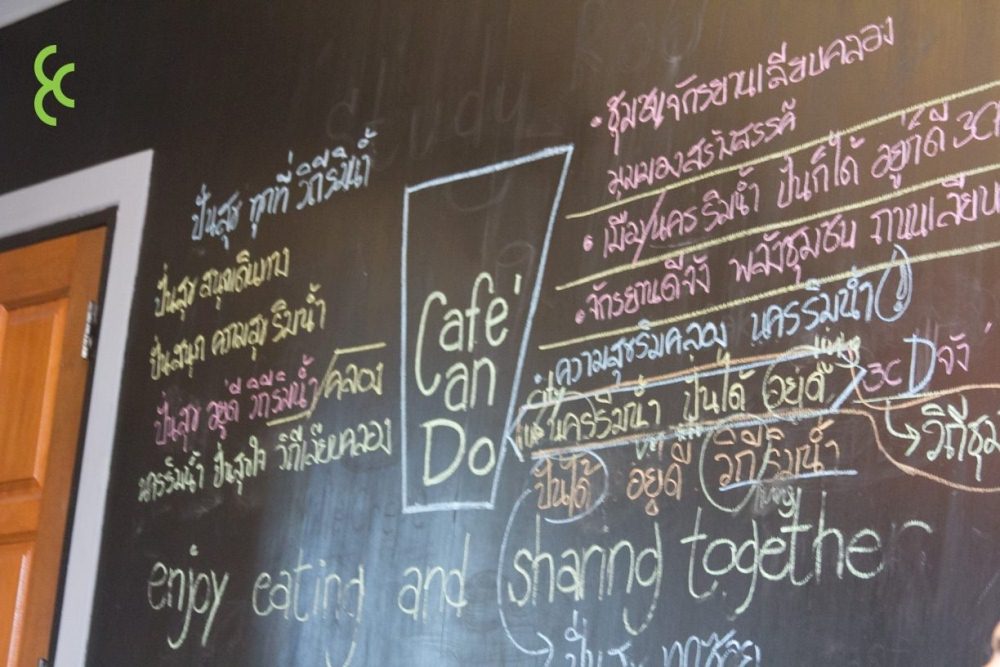 ปั่นสุข ทุกที่ วิถีริมน้ำ
ปั่นสุข สนุกเดินทาง
ปั่นสนุก ความสุข ริมน้ำ
ปั่นสุข อยู่ดี วิถีริมน้ำ/คลอง
นครริมน้ำ ปั่นสุขใจ วิถีเลียบคลอง
Café
Can
Do
• ชุมชนจักรยานเลียบคลอง
มุมมองสร้างสรรค์
• เมือง/นครริมน้ำ ปั่นก็ได้ อยู่ก็ดี 3C
• จักรยานดีจัง พลังชุมชน
• ความสุขริมคลอง นครริมน้ำ
นครริมน้ำ ปั่นได้ อยู่ดี 3C D จัง
ปั่นได้ อยู่ดี วิถีริมน้ำ
วิถีชุม
enjoy eating and sharing together
ปั่น